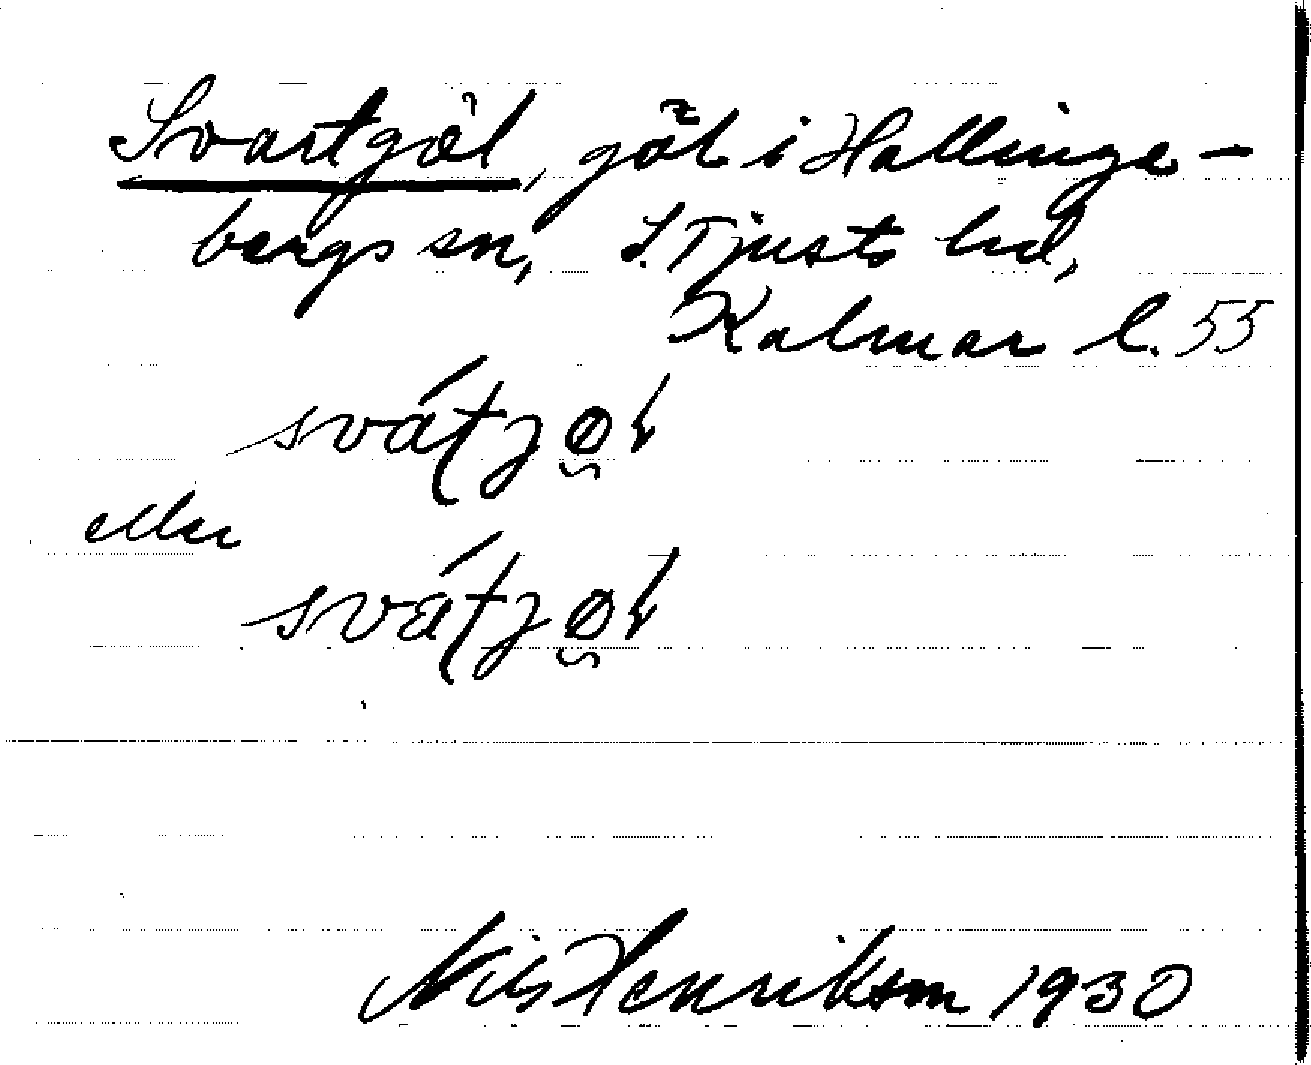 Svartgöl, göl i Hallinge-
bergs sn, S. Tjusts hd,
Kalmar l. 55
eller
Nils Henrikson 1930